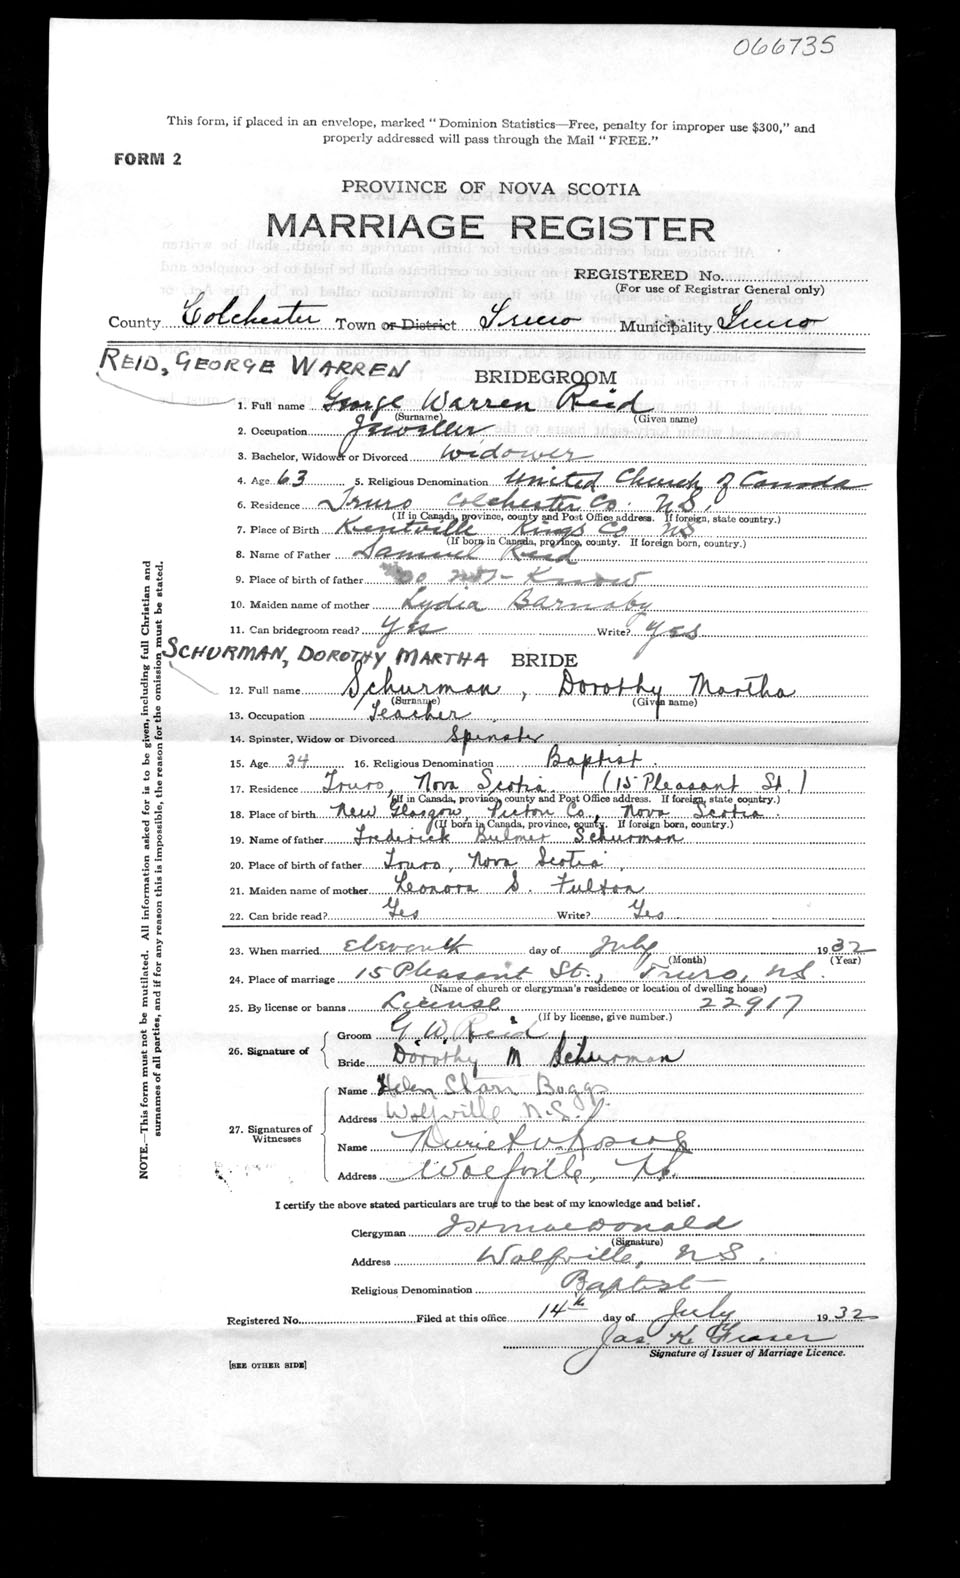 066735
This form, if placed in an envelope, marked "Dominion Statistics—Free, penalty for improper use $300," and
properly addressed will pass through the Mail "FREE."
FORM 2
PROVINCE OF NOVA SCOTIA
MARRIAGE REGISTER
REGISTERED No.
(For use of Registrar General only)
County Colchester Town or District Truro Municipality Truro
REID, GEORGE WARREN
BRIDEGROOM
1. Full name George Warren Reid
(Surname) (Given name)
2. Occupation Jeweller
3. Bachelor, Widower or Divorced Widower
4. Age 63 5. Religious Denomination United Church of Canada
6. Residence Truro Colchester Co. N.S.
(If in Canada, province, county and Post Office address. If foreign, state country.)
7. Place of Birth Kentville Kings Co NS
(If born in Canada, province, county. If foreign born, country.)
8. Name of Father Samuel Reid
9. Place of birth of father Do not Know
10. Maiden name of mother Lydia Barnaby
11. Can bridegroom read? Yes Write? Yes
SCHURMAN, DOROTHY MARTHA
BRIDE
12. Full name Schurman, Dorothy Martha
(Surname) (Given name)
13. Occupation Teacher
14. Spinster, Widow or Divorced Spinster
15. Age 34 16. Religious Denomination Baptist.
17. Residence Truro, Nova Scotia (15 Pleasant St.)
(If in Canada, province, county and Post Office address. If foreign, state country.)
18. Place of birth New Glasgow, Pictou Co., Nova Scotia.
(If born in Canada, province, county. If foreign born, country.)
19. Name of father Frederick Bulmer Schurman
20. Place of birth of father Truro, Nova Scotia
21. Maiden name of mother Leonora S. Fulton
22. Can bride read? Yes Write? Yes
23. When married Eleventh day of July 1932
(Month) (Year)
24. Place of marriage 15 Pleasant St., Truro, N.S.
(Name of church or clergyman's residence or location of dwelling house)
25. By license or banns License 22917
(If by license, give number.)
26. Signature of
Groom G. W. Reid
Bride Dorothy M Schurman
27. Signatures of Witnesses
Name Helen Starr Boggs
Address Wolfville N.S.
Name
Address Wolfville, N.S.
I certify the above stated particulars are true to the best of my knowledge and belief.
Clergyman MacDonald
(Signature)
Address Wolfville, N.S.
Religious Denomination Baptist
Registered No. Filed at this office 14th day of July 1932
Jas. K. Fraser
Signature of Issuer of Marriage Licence.
[SEE OTHER SIDE]
NOTE.—This form must not be mutilated. All Information asked for is to be given, including full Christian and
surnames of all parties, and if for any reason this is impossible, the reason for the omission must be stated.